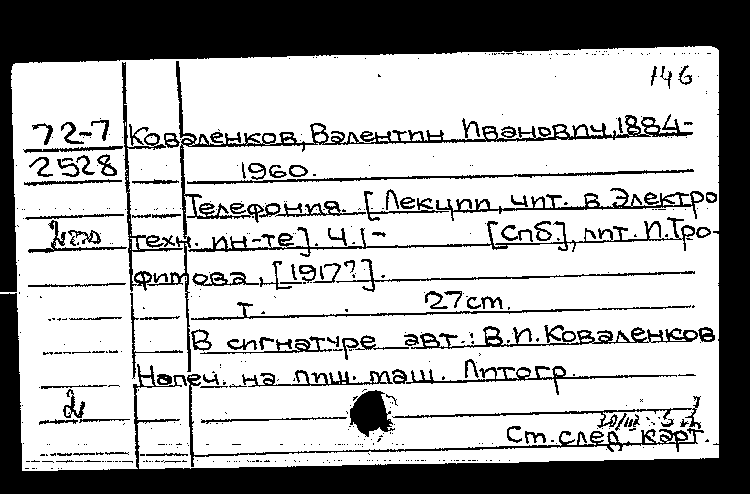 146
72-7 Коваленков, Валентин Иванович, 1884-
2528 1960.
Телефония. [Лекции, чит. в Электро
техн. ин-те]. Ч.1- [Спб.], лит. И.Тро-
фимова, [1917?].
т. 27cm.
В сигнатуре авт.: В.И.Коваленков
Напеч. на пиш. маш. Литогр.
См.след. карт.